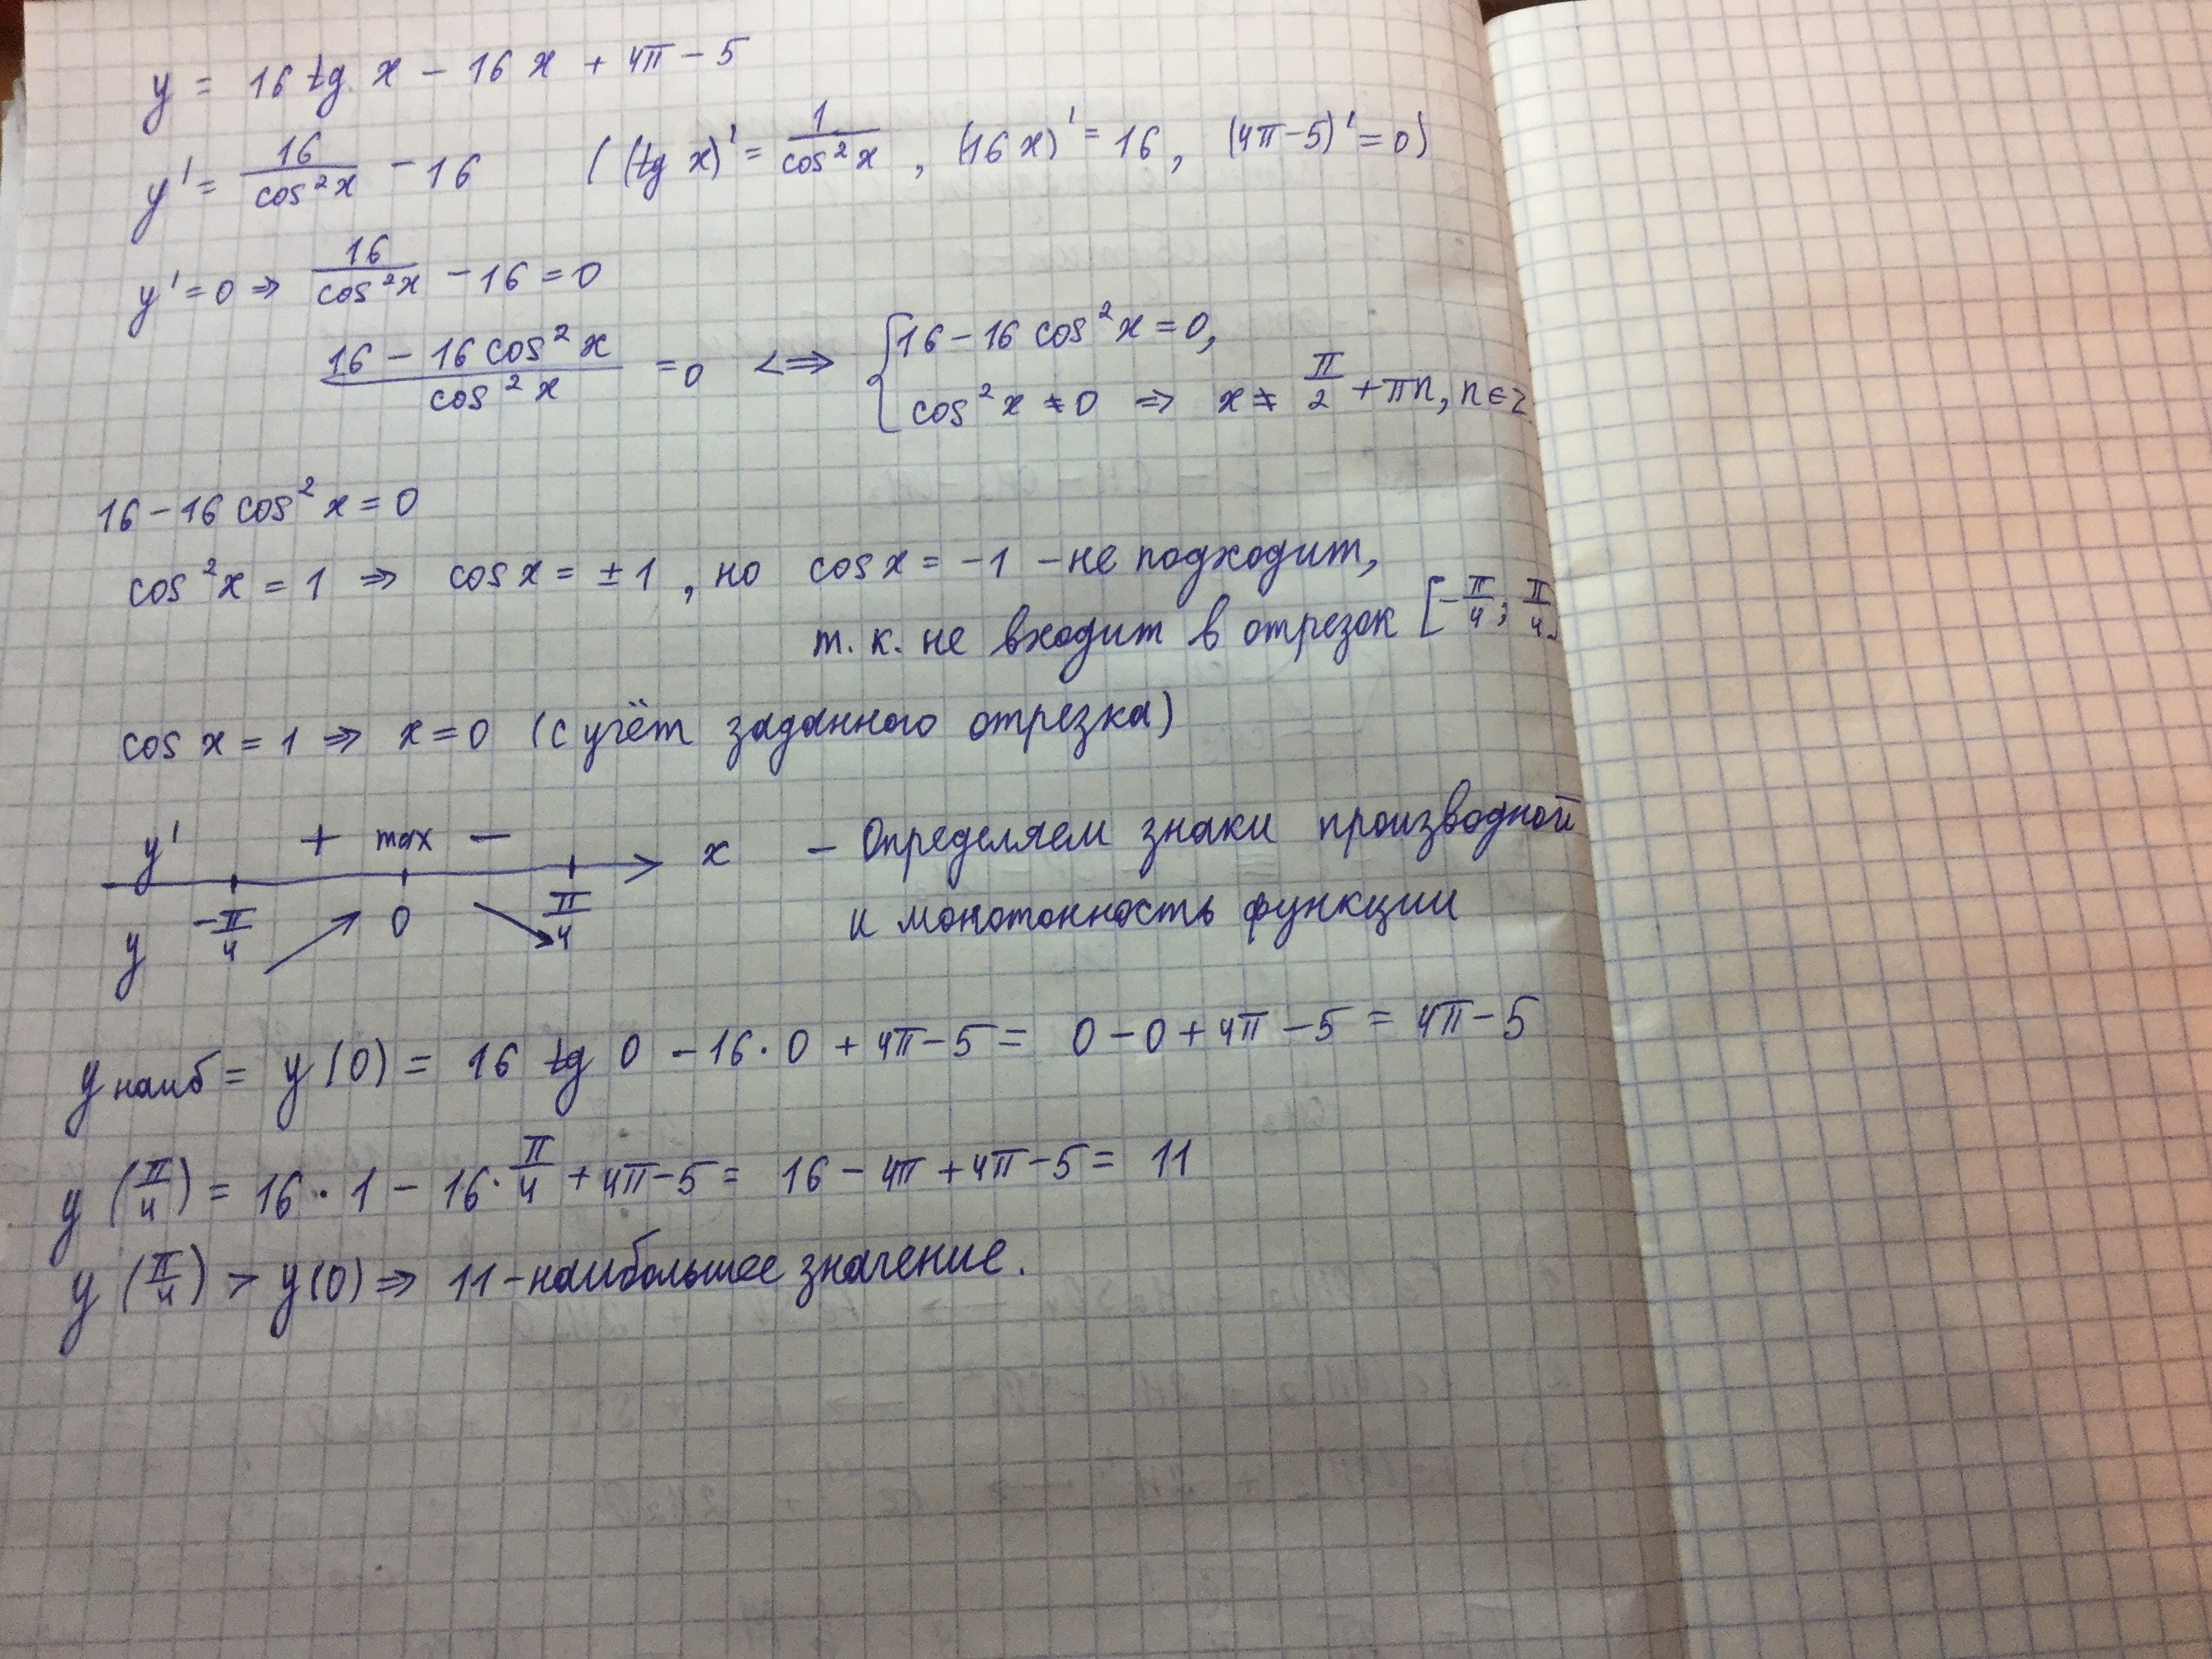 y = 16 tg x - 16 x + 4π - 5
y' = 16/cos²x - 16 ((tg x)' = 1/cos²x, (16x)' = 16, (4π-5)' = 0)
y' = 0 ⇒ 16/cos²x - 16 = 0
(16 - 16 cos²x)/cos²x = 0 <=> { 16 - 16 cos²x = 0,
cos²x ≠ 0 ⇒ x ≠ π/2 + πn, n∈z
16 - 16 cos²x = 0
cos²x = 1 ⇒ cos x = ±1, но cos x = -1 - не подходит,
т. к. не входит в отрезок [-π/4; π/4]
cos x = 1 ⇒ x = 0 (с учёт заданного отрезка)
y' + max - x - Определяем знаки производной
y -π/4 0 π/4 и монотонность функции
y наиб = y(0) = 16 tg 0 - 16·0 + 4π - 5 = 0 - 0 + 4π - 5 = 4π - 5
y(π/4) = 16·1 - 16·π/4 + 4π - 5 = 16 - 4π + 4π - 5 = 11
y(π/4) > y(0) ⇒ 11 - наибольшее значение.